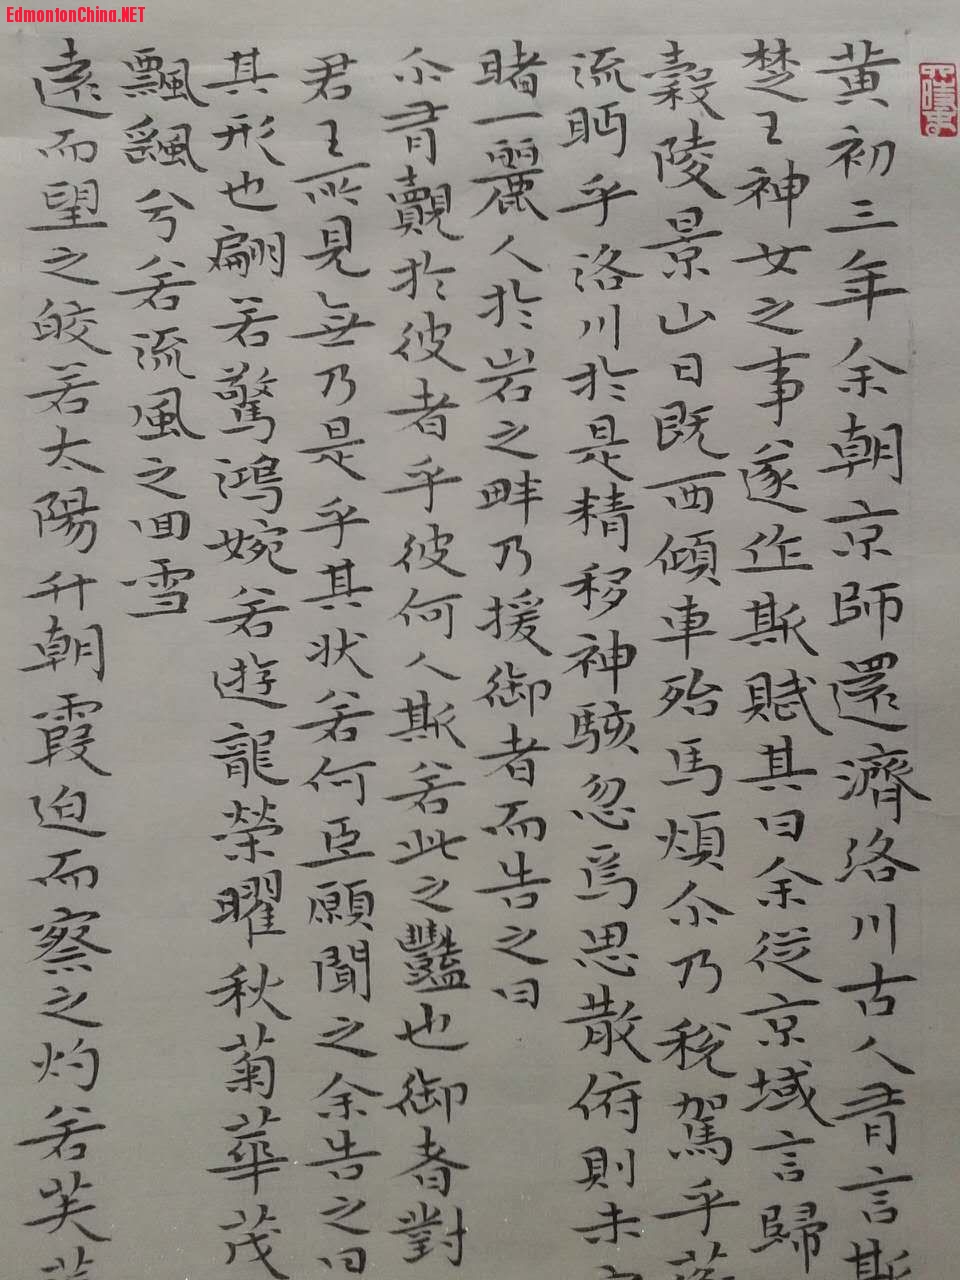 EdmontonChina.NET
黄初三年余朝京師還濟洛川古人有言斯
楚王神女之事遂作斯賦其曰余從京域言歸
轂陵景山日既西傾車殆馬煩尒乃税駕乎
流眄乎洛川於是精移神駭忽焉思散俯則未
睹一麗人於岩之畔乃援御者而告之曰
尒有覿於彼者乎彼何人斯若此之豔也御者對
君王所見無乃是乎其状若何臣願聞之余告之曰
其形也翩若驚鴻婉若遊龍榮曜秋菊華茂
飄颻兮若流風之回雪
遠而望之皎若太陽升朝霞迫而察之灼若芙